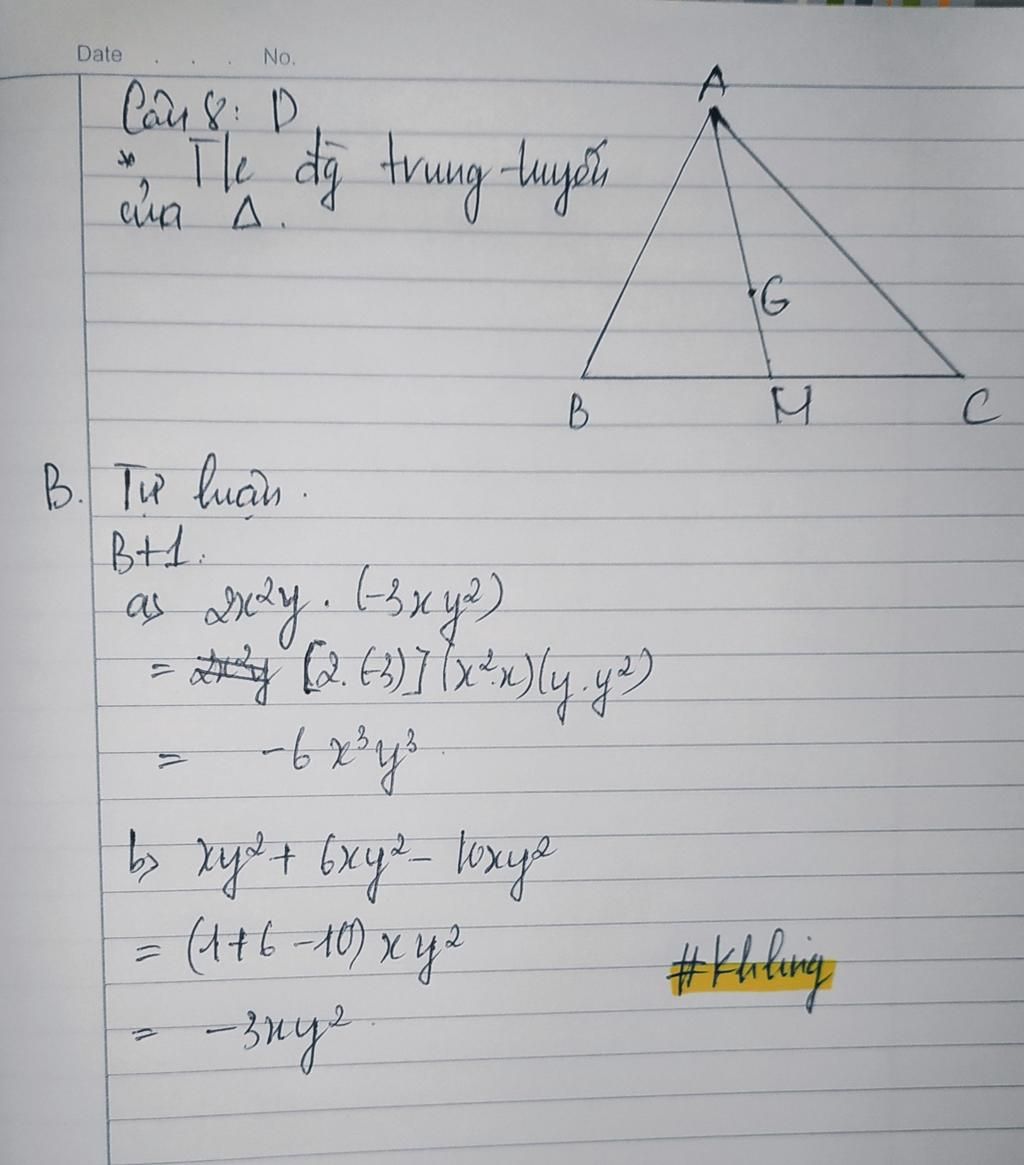 Date . . . . No.
Câu 8: D
*, T/c đg̀ trung tuyến
của Δ.
A
G
B M C
B. Tự luận.
B+1:
a, 2x²y . (-3xy²)
= [2.(-3)](x².x)(y.y²)
= -6x³y³
b, xy² + 6xy² - 10xy²
= (1+6-10)xy²
= -3xy²
#Khling